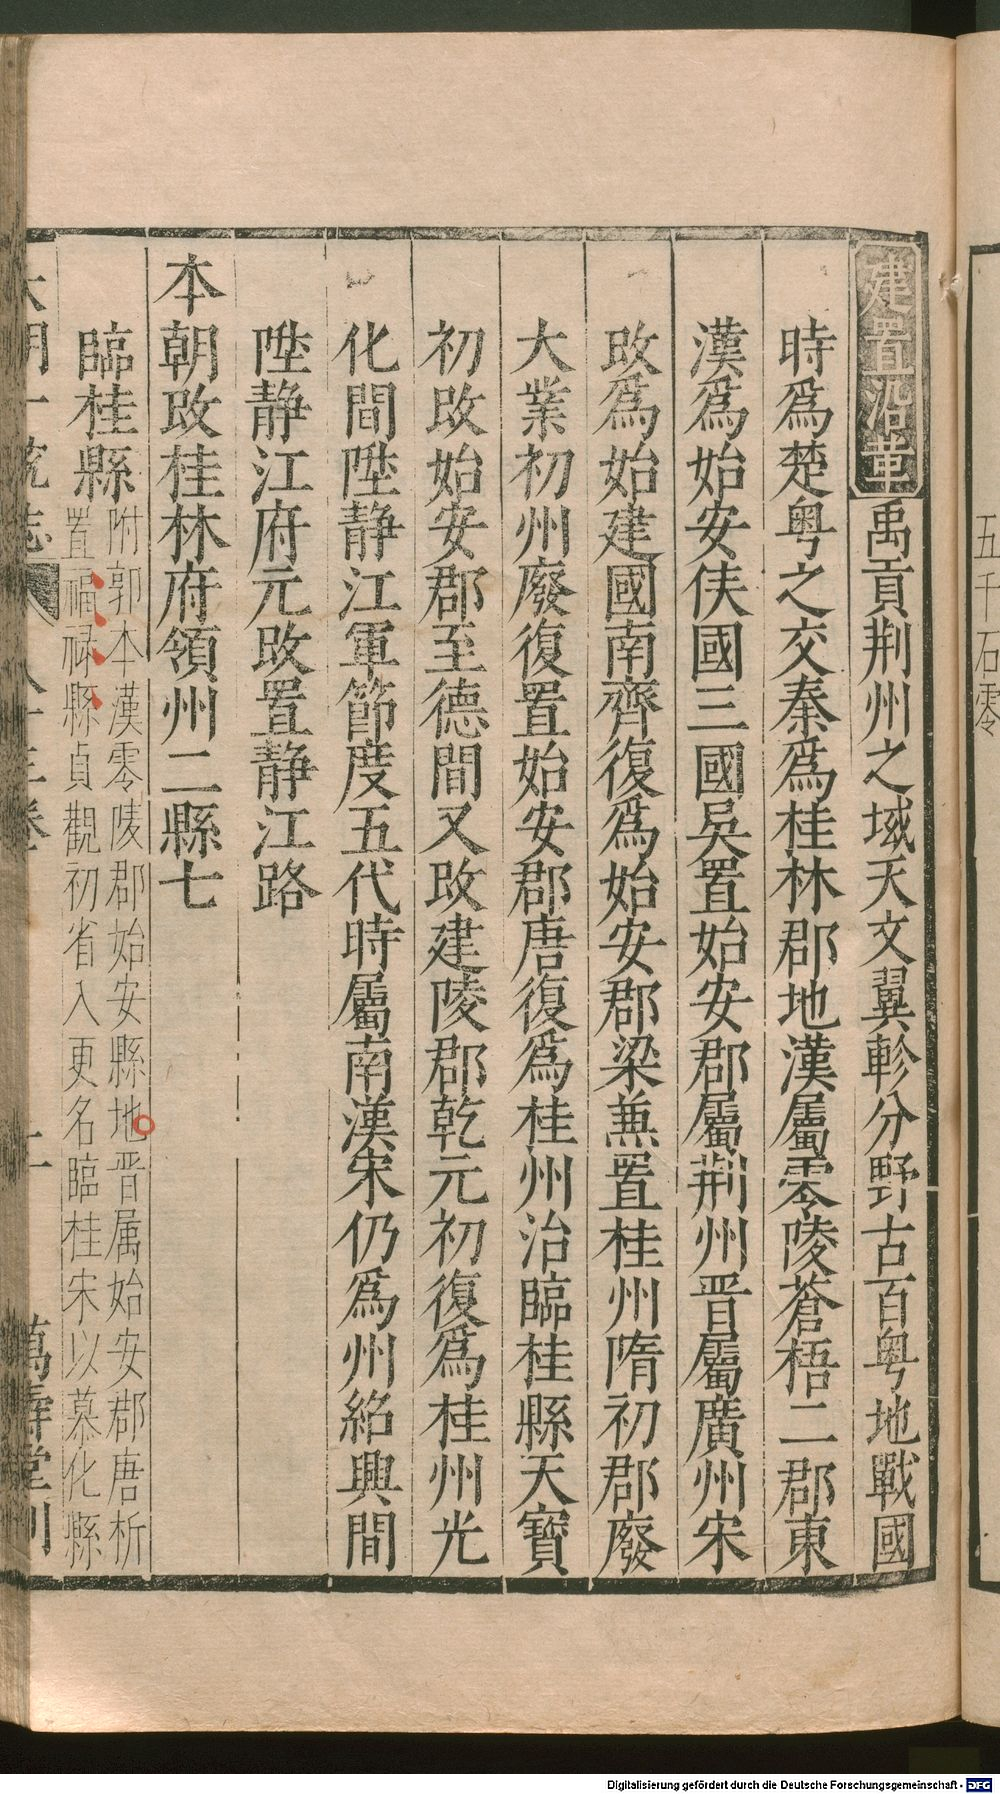 建置沿革禹貢荆州之域天文翼軫分野古百粤地戰國
時爲楚粤之交秦爲桂林郡地漢屬零陵蒼梧二郡東
漢爲始安侯國三國吳置始安郡屬荆州晋屬廣州宋
改爲始建國南齊復爲始安郡梁兼置桂州隋初郡廢
大業初州廢復置始安郡唐復爲桂州治臨桂縣天寶
初改始安郡至德間又改建陵郡乾元初復爲桂州光
化間陞静江軍節度五代時屬南漢宋仍爲州紹興間
陞静江府元改置静江路
本朝改桂林府領州二縣七
臨桂縣
附郭本漢零陵郡始安縣地晋属始安郡唐析
置福禄縣貞觀初省入更名臨桂宋以慕化縣
五千石零
Digitalisierung gefördert durch die Deutsche Forschungsgemeinschaft - DFG